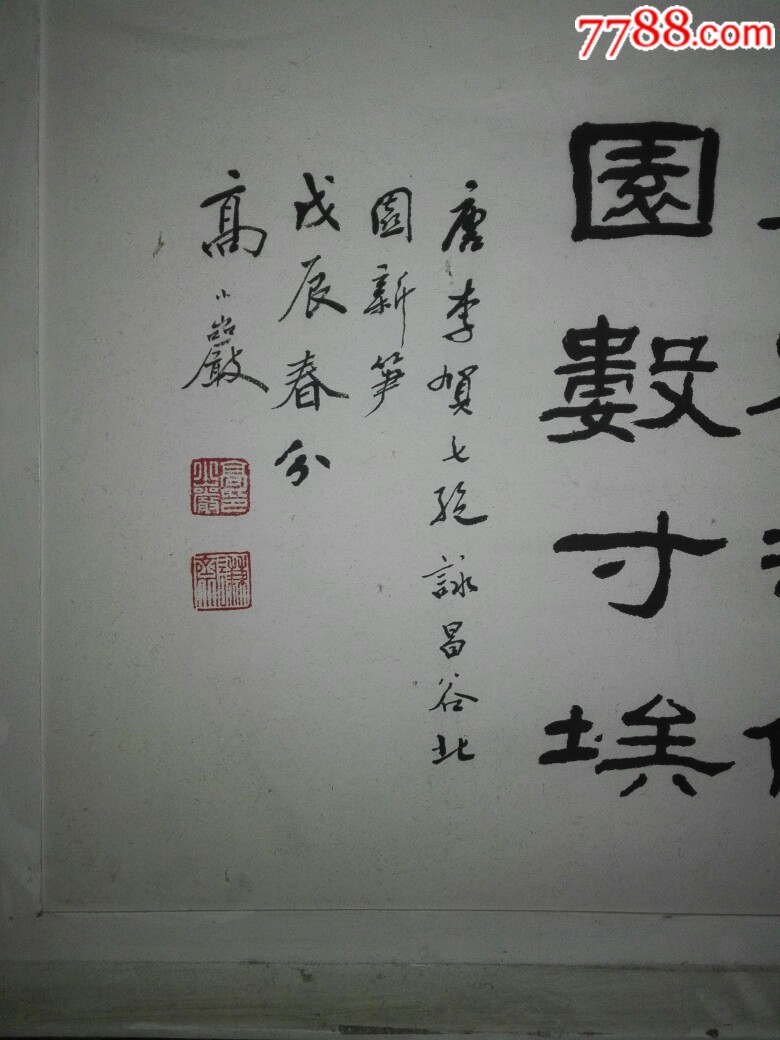 7788.com
園數寸埃
唐李賀七絕詠昌谷北
園新笋
戊辰春分
高小巖